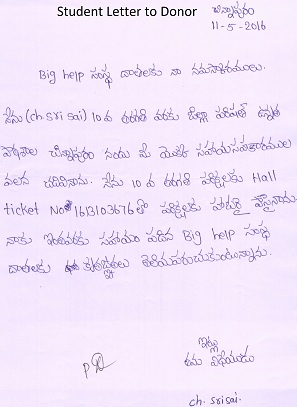 Student Letter to Donor
చిన్నాపురం
11-5-2016
Big help సంస్థ దాతలకు నా నమస్కారములు.
నేను (ch. sri sai) 10 వ తరగతి వరకు జిల్లా పరిషత్ ఉన్నత
పాఠశాల చిన్నాపురం నందు మీ యొక్క సహాయసహకారముల
వలన చదివినాను. నేను 10 వ తరగతి పరీక్షలకు Hall
ticket No 1613103676తో పరీక్షలకు హాజరై
నాకు ఇంతవరకు సహాయం Big help సంస్థ
దాతలకు కృతజ్ఞతలు తెలియపరుచుకుంటున్నాను.
ఇట్లు
తమ విధేయుడు
ch. sri sai.